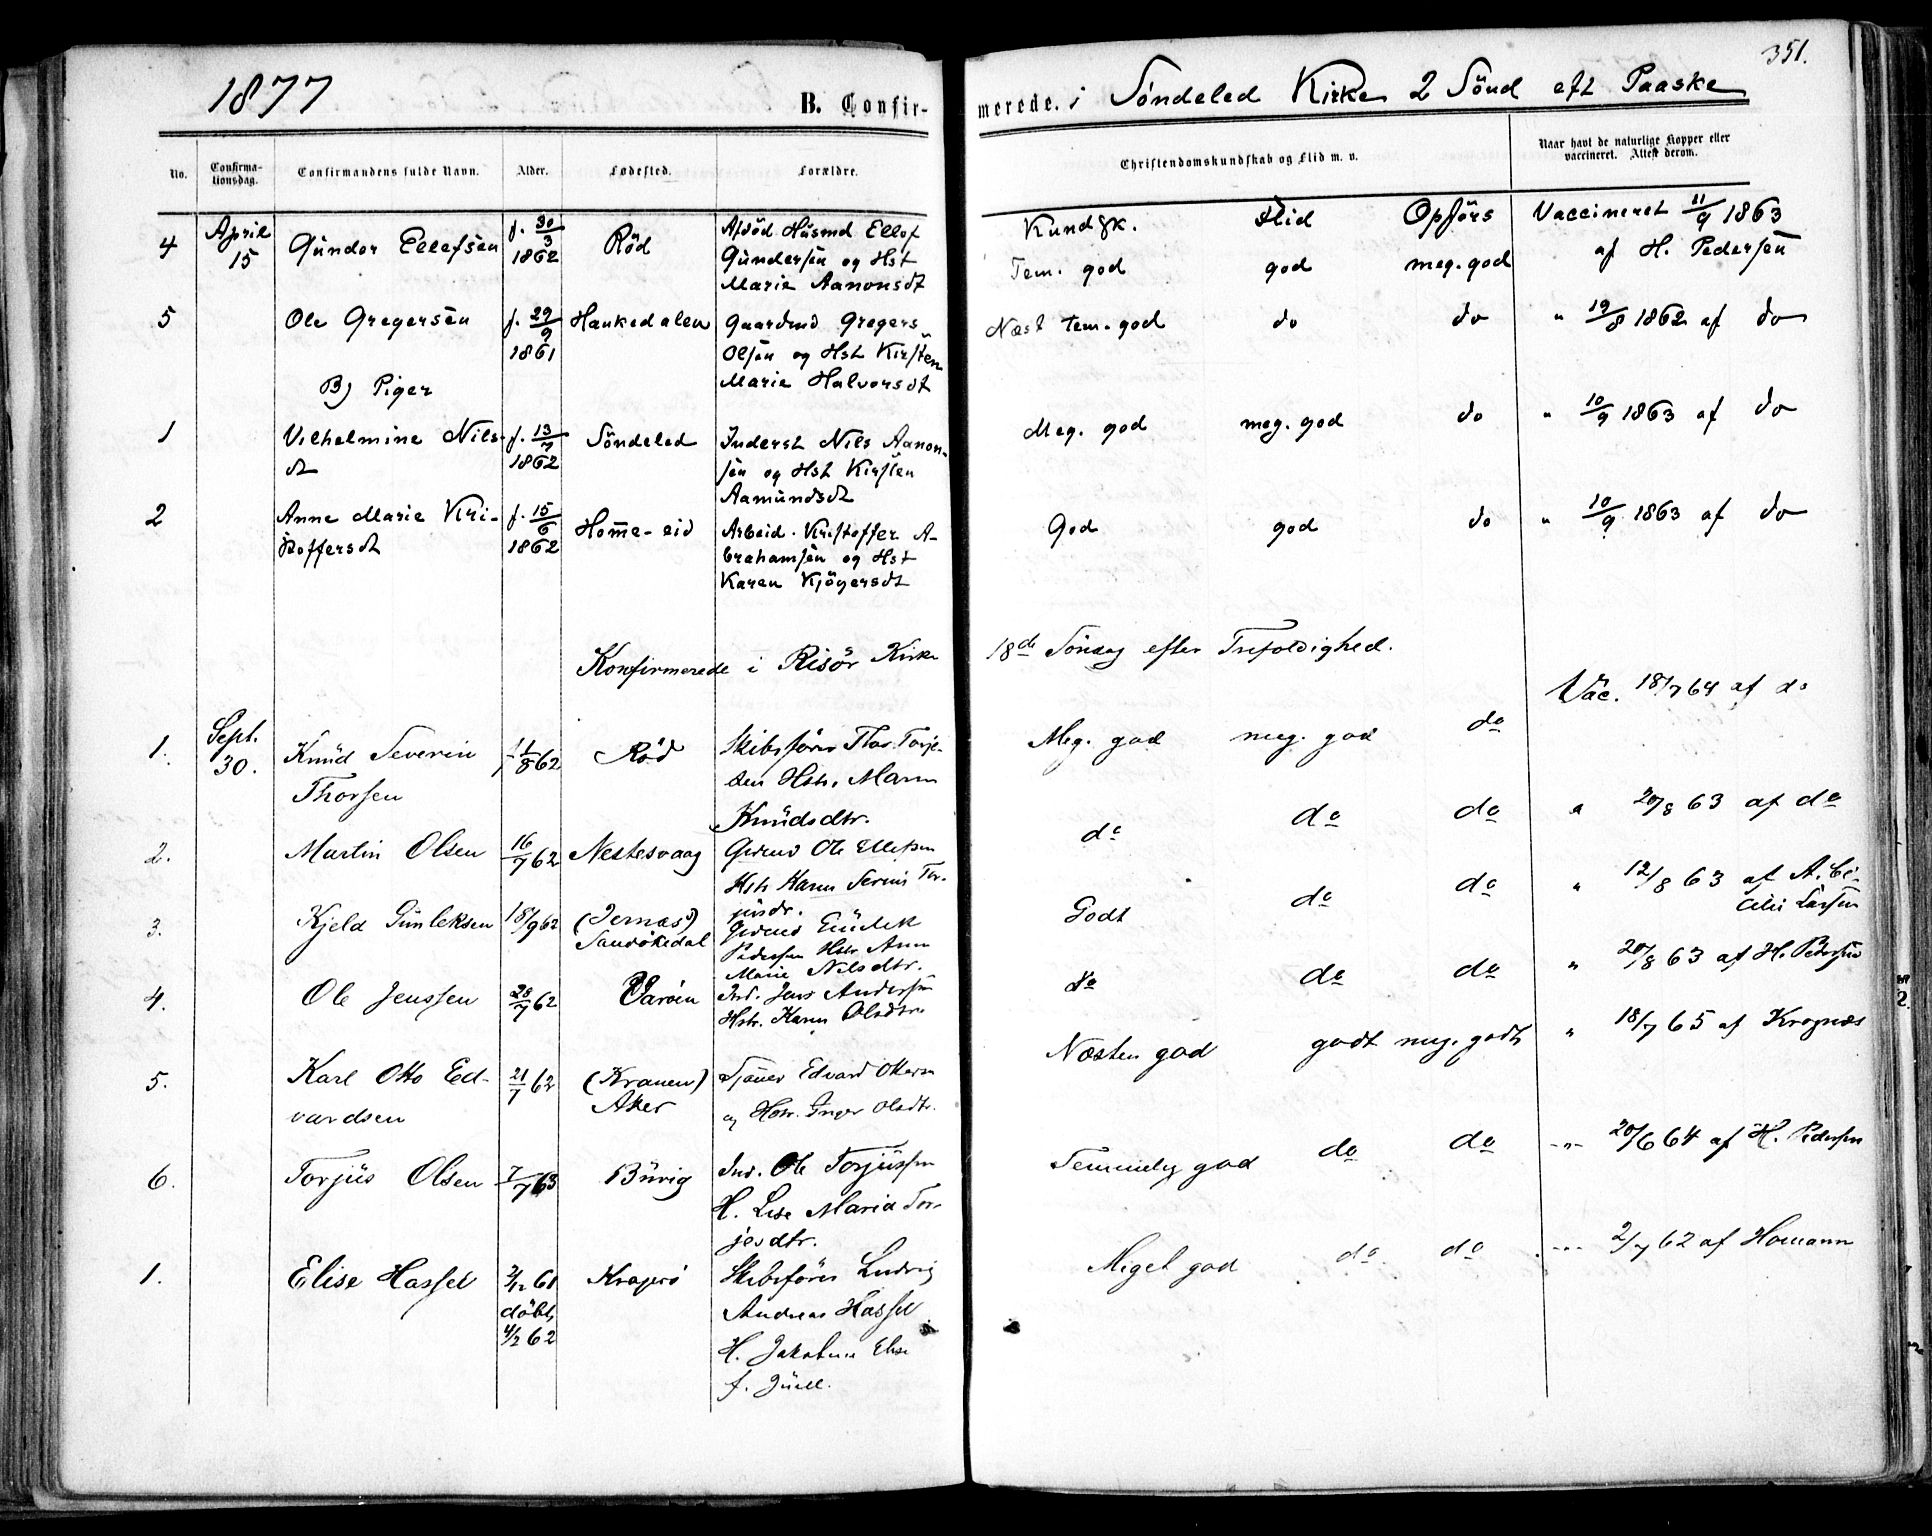 351.
1877 B. Confirmerede. i Söndeled Kirke 2 Sönd eft Paaske
No. Confirmationsdag. Confirmandens fulde Navn. Alder. Fødested. Forældre. Christendomskundskab og Flid m. v. Naar havt de naturlige Kopper eller vaccineret. Attest derom.
Kundsk. Flid Opförs
4 April 15 Gunder Ellefsen f. 30/3 1862 Röd Afdöd Husmd Ellef
Gundersen og Hst
Marie Aanonsdt
Tem. god god meg. god Vaccineret 11/9 1863
af H. Pedersen
5 Ole Gregersen f. 29/9 1861 Haukedalen Gaardmd Gregers
Olsen og Hst Kirsten
Marie Halvorsdt
Næst tem. god do do " 19/8 1862 af do
B) Piger
1 Vilhelmine Nils-
dt
f. 13/7 1862 Söndeled Inderst Nils Aanon-
sen og Hst Kirsten
Aamundsdt
Meg. god meg. god do " 10/9 1863 af do
2 Anne Marie Kri-
stoffersdt
f. 15/6 1862 Homme-eid Arbeid. Kristoffer A-
brahamsen og Hst
Karen Kjögersdt
God god do " 10/9 1863 af do
Konfirmerede i Risör Kirke 18de Söndag efter Trefoldighed.
1. Sept. 30. Knud Severin
Thorsen
f 1/8 62 Röd Skibsförer Thor Torje-
sen Hstr. Maren
Knudsdtr.
Meg. god meg. god do Vac. 18/7 64 af do
2. Martin Olsen 16/7 62 Nestesvaag Grdmd Ole Ellefsen
Hstr Karen Serine Tor-
jusdr.
do do do " 20/8 63 af do
3. Kjeld Gunleksen 18/9 62 (Jernæs)
Sandökedal
Grdmd Gunlek
Pedersen Hstr. Ann
Marie Nilsdtr.
Godt do do " 12/8 63 af A. Ce-
cilie Larsen
4. Ole Jenssen 28/7 62 Baröen Ind. Jens Andersen
Hstr. Karen Olsdtr.
do do do " 20/8 63 af H. Pedersen
5. Karl Otto Ed-
vardsen
21/7 62 (Kranen)
Aker
Sjömd Edvard Ottersen
og Hstr. Inger Olsdtr.
Næsten god godt meg. godt " 18/7 65 af Krognæs
6. Torjus Olsen 7/7 63 Burig Ind. Ole Torjussen
H. Lise Maria Tor-
jesdtr.
Temmelig god do do -"- 20/6 64 af H. Pedersen
1. Elise Hassel 2/12 61
döbt
4/2 62
Kragerö Skibsförer Ludvig
Andreas Hassel
H. Jakobine Elise
f. Juell.
Meget god do do -"- 2/7 62 af Homann